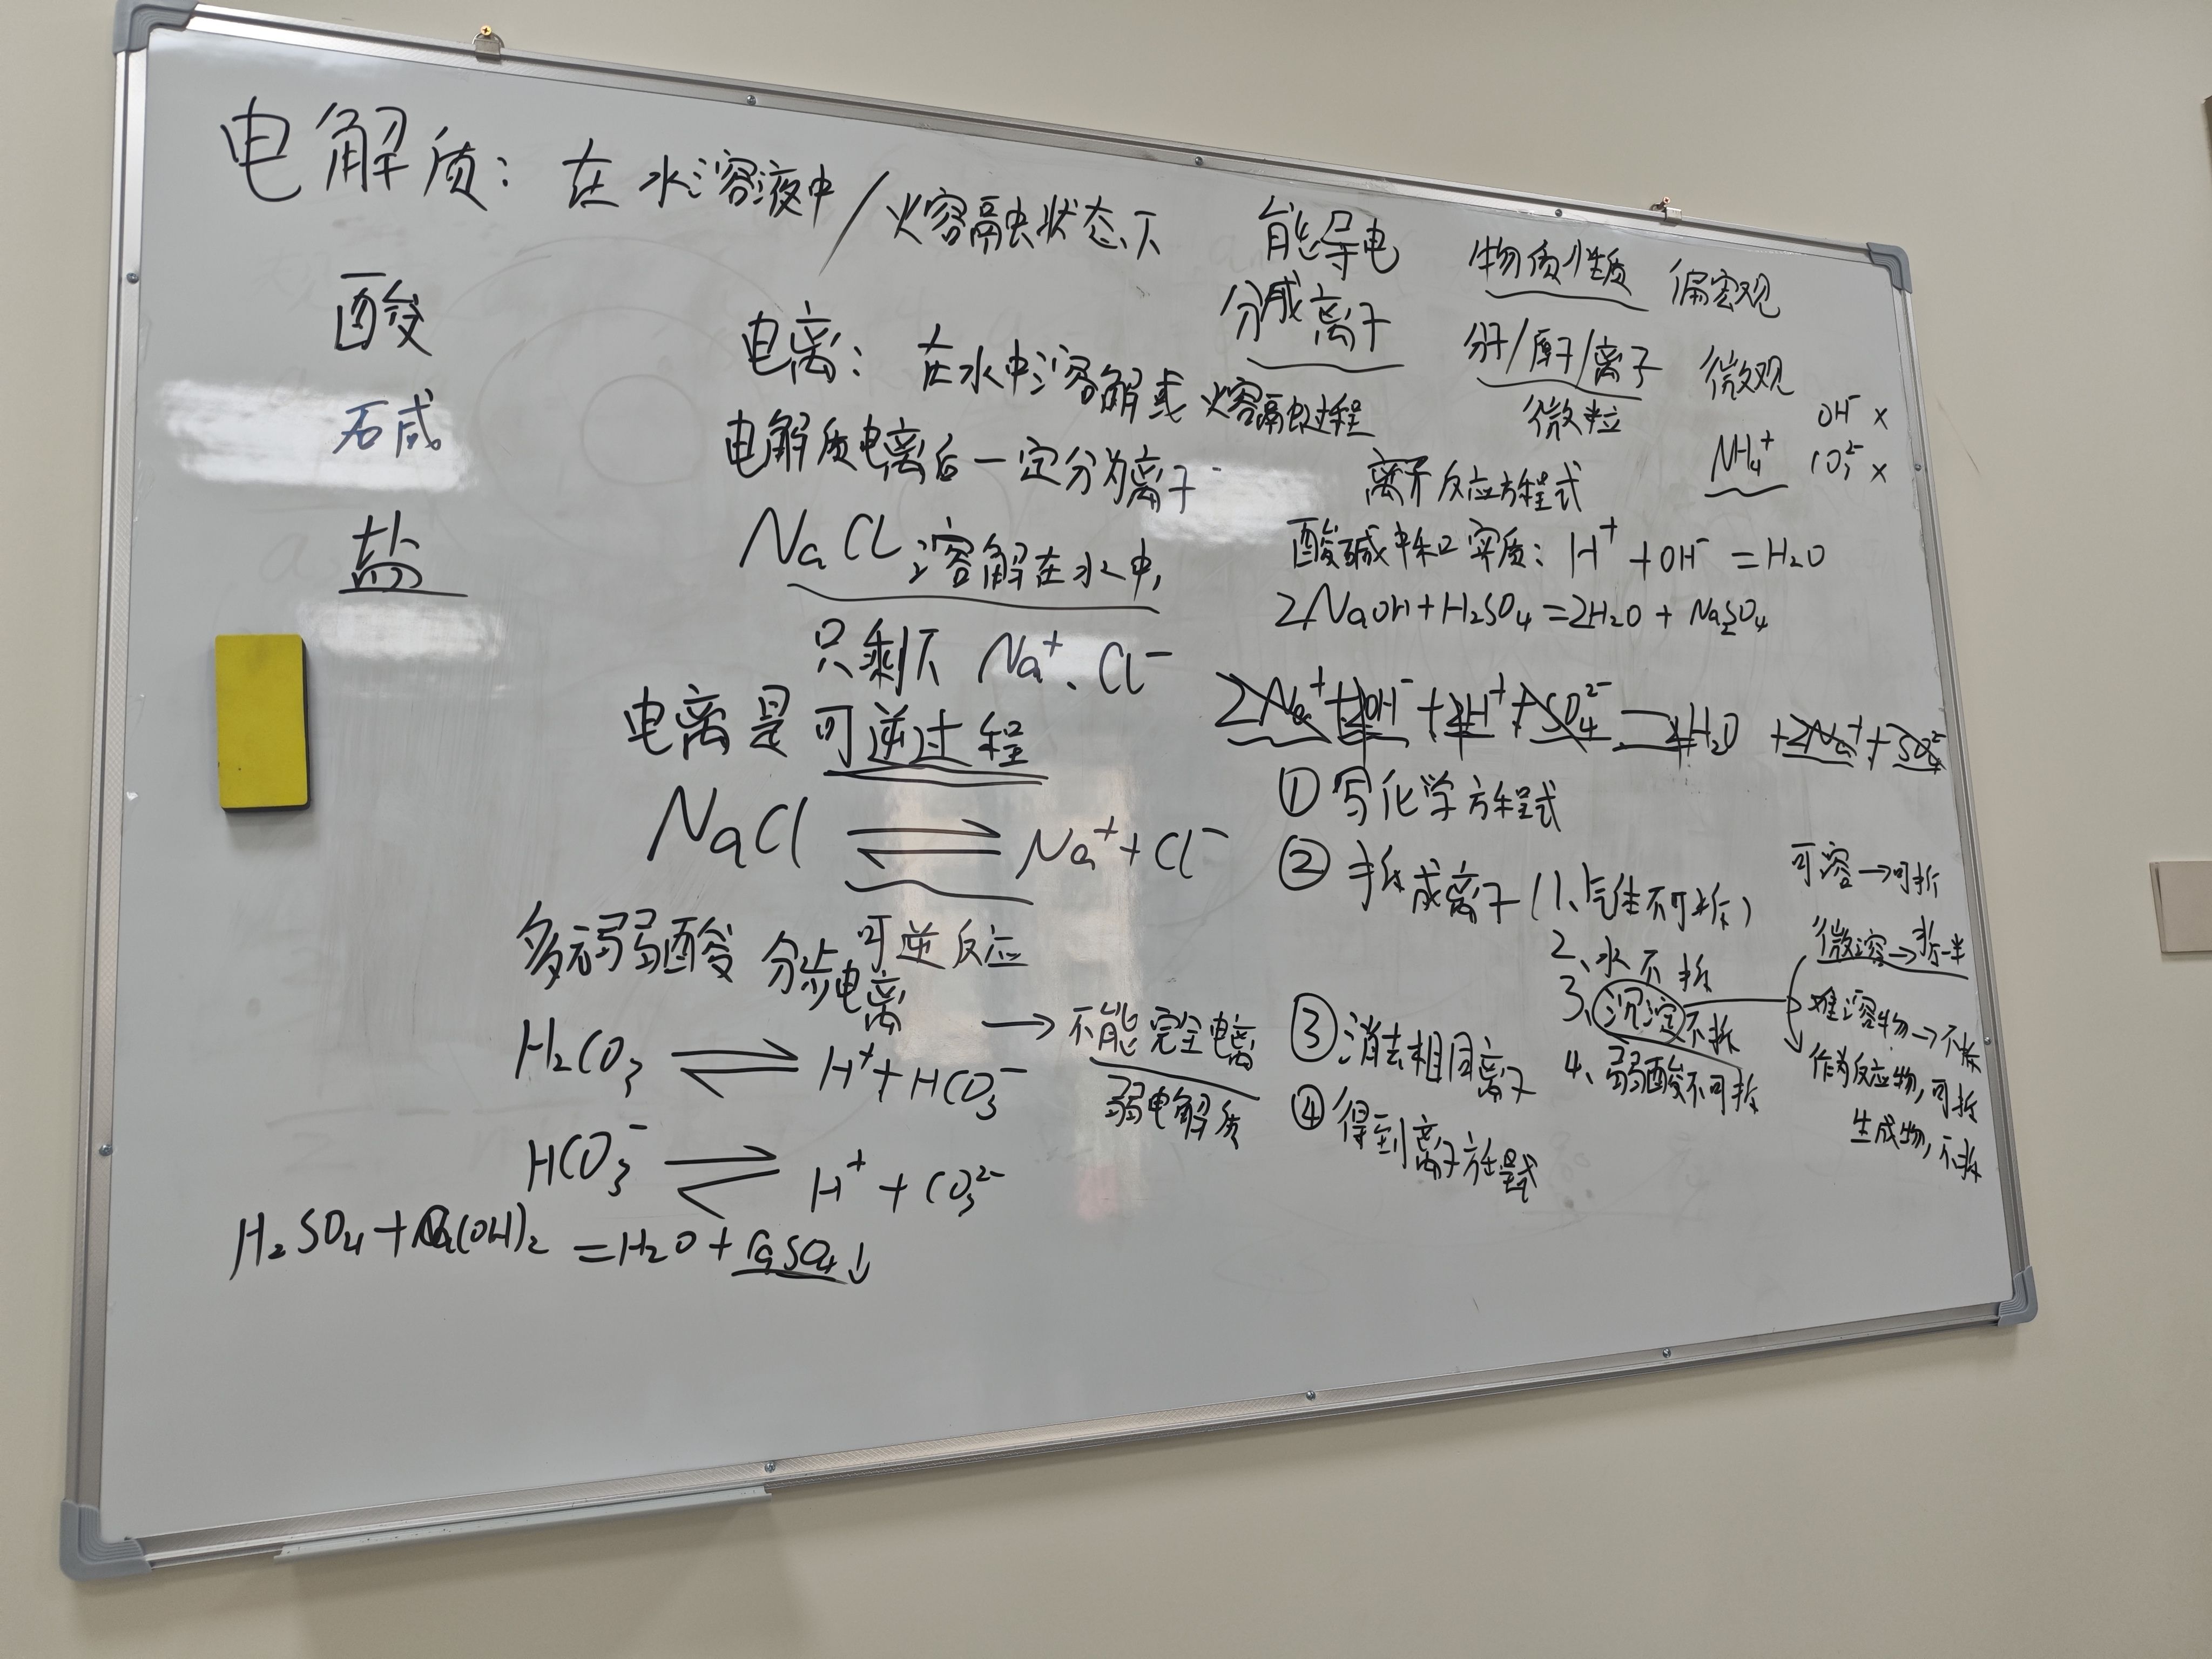 电解质：在水溶液中/熔融状态下 能导电 物质性质 偏宏观
分成离子 分子/原子/离子 微观
微粒
酸
碱
盐
电离：在水中溶解或熔融过程
电解质电离后一定分为离子
NaCl溶解在水中，
只剩下 Na⁺、Cl⁻
电离是可逆过程
NaCl ⇌ Na⁺ + Cl⁻
可逆反应
多元弱酸 分步电离
H₂CO₃ ⇌ H⁺ + HCO₃⁻
→ 不能完全电离
弱电解质
HCO₃⁻ ⇌ H⁺ + CO₃²⁻
H₂SO₄ + Ca(OH)₂ = H₂O + CaSO₄↓
NH₄⁺ OH⁻ ×
CO₃²⁻ ×
离子反应方程式
酸碱中和实质：H⁺ + OH⁻ = H₂O
2NaOH + H₂SO₄ = 2H₂O + Na₂SO₄
2Na⁺ + 2OH⁻ + 2H⁺ + SO₄²⁻ = 2H₂O + 2Na⁺ + SO₄²⁻
① 写化学方程式
② 拆成离子（1、气体不可拆）
2、水不拆
3、沉淀不拆
4、弱酸不可拆
③ 消去相同离子
④ 得到离子方程式
可溶→可拆
微溶→拆一半
难溶物→不拆
作为反应物，可拆
生成物，不拆